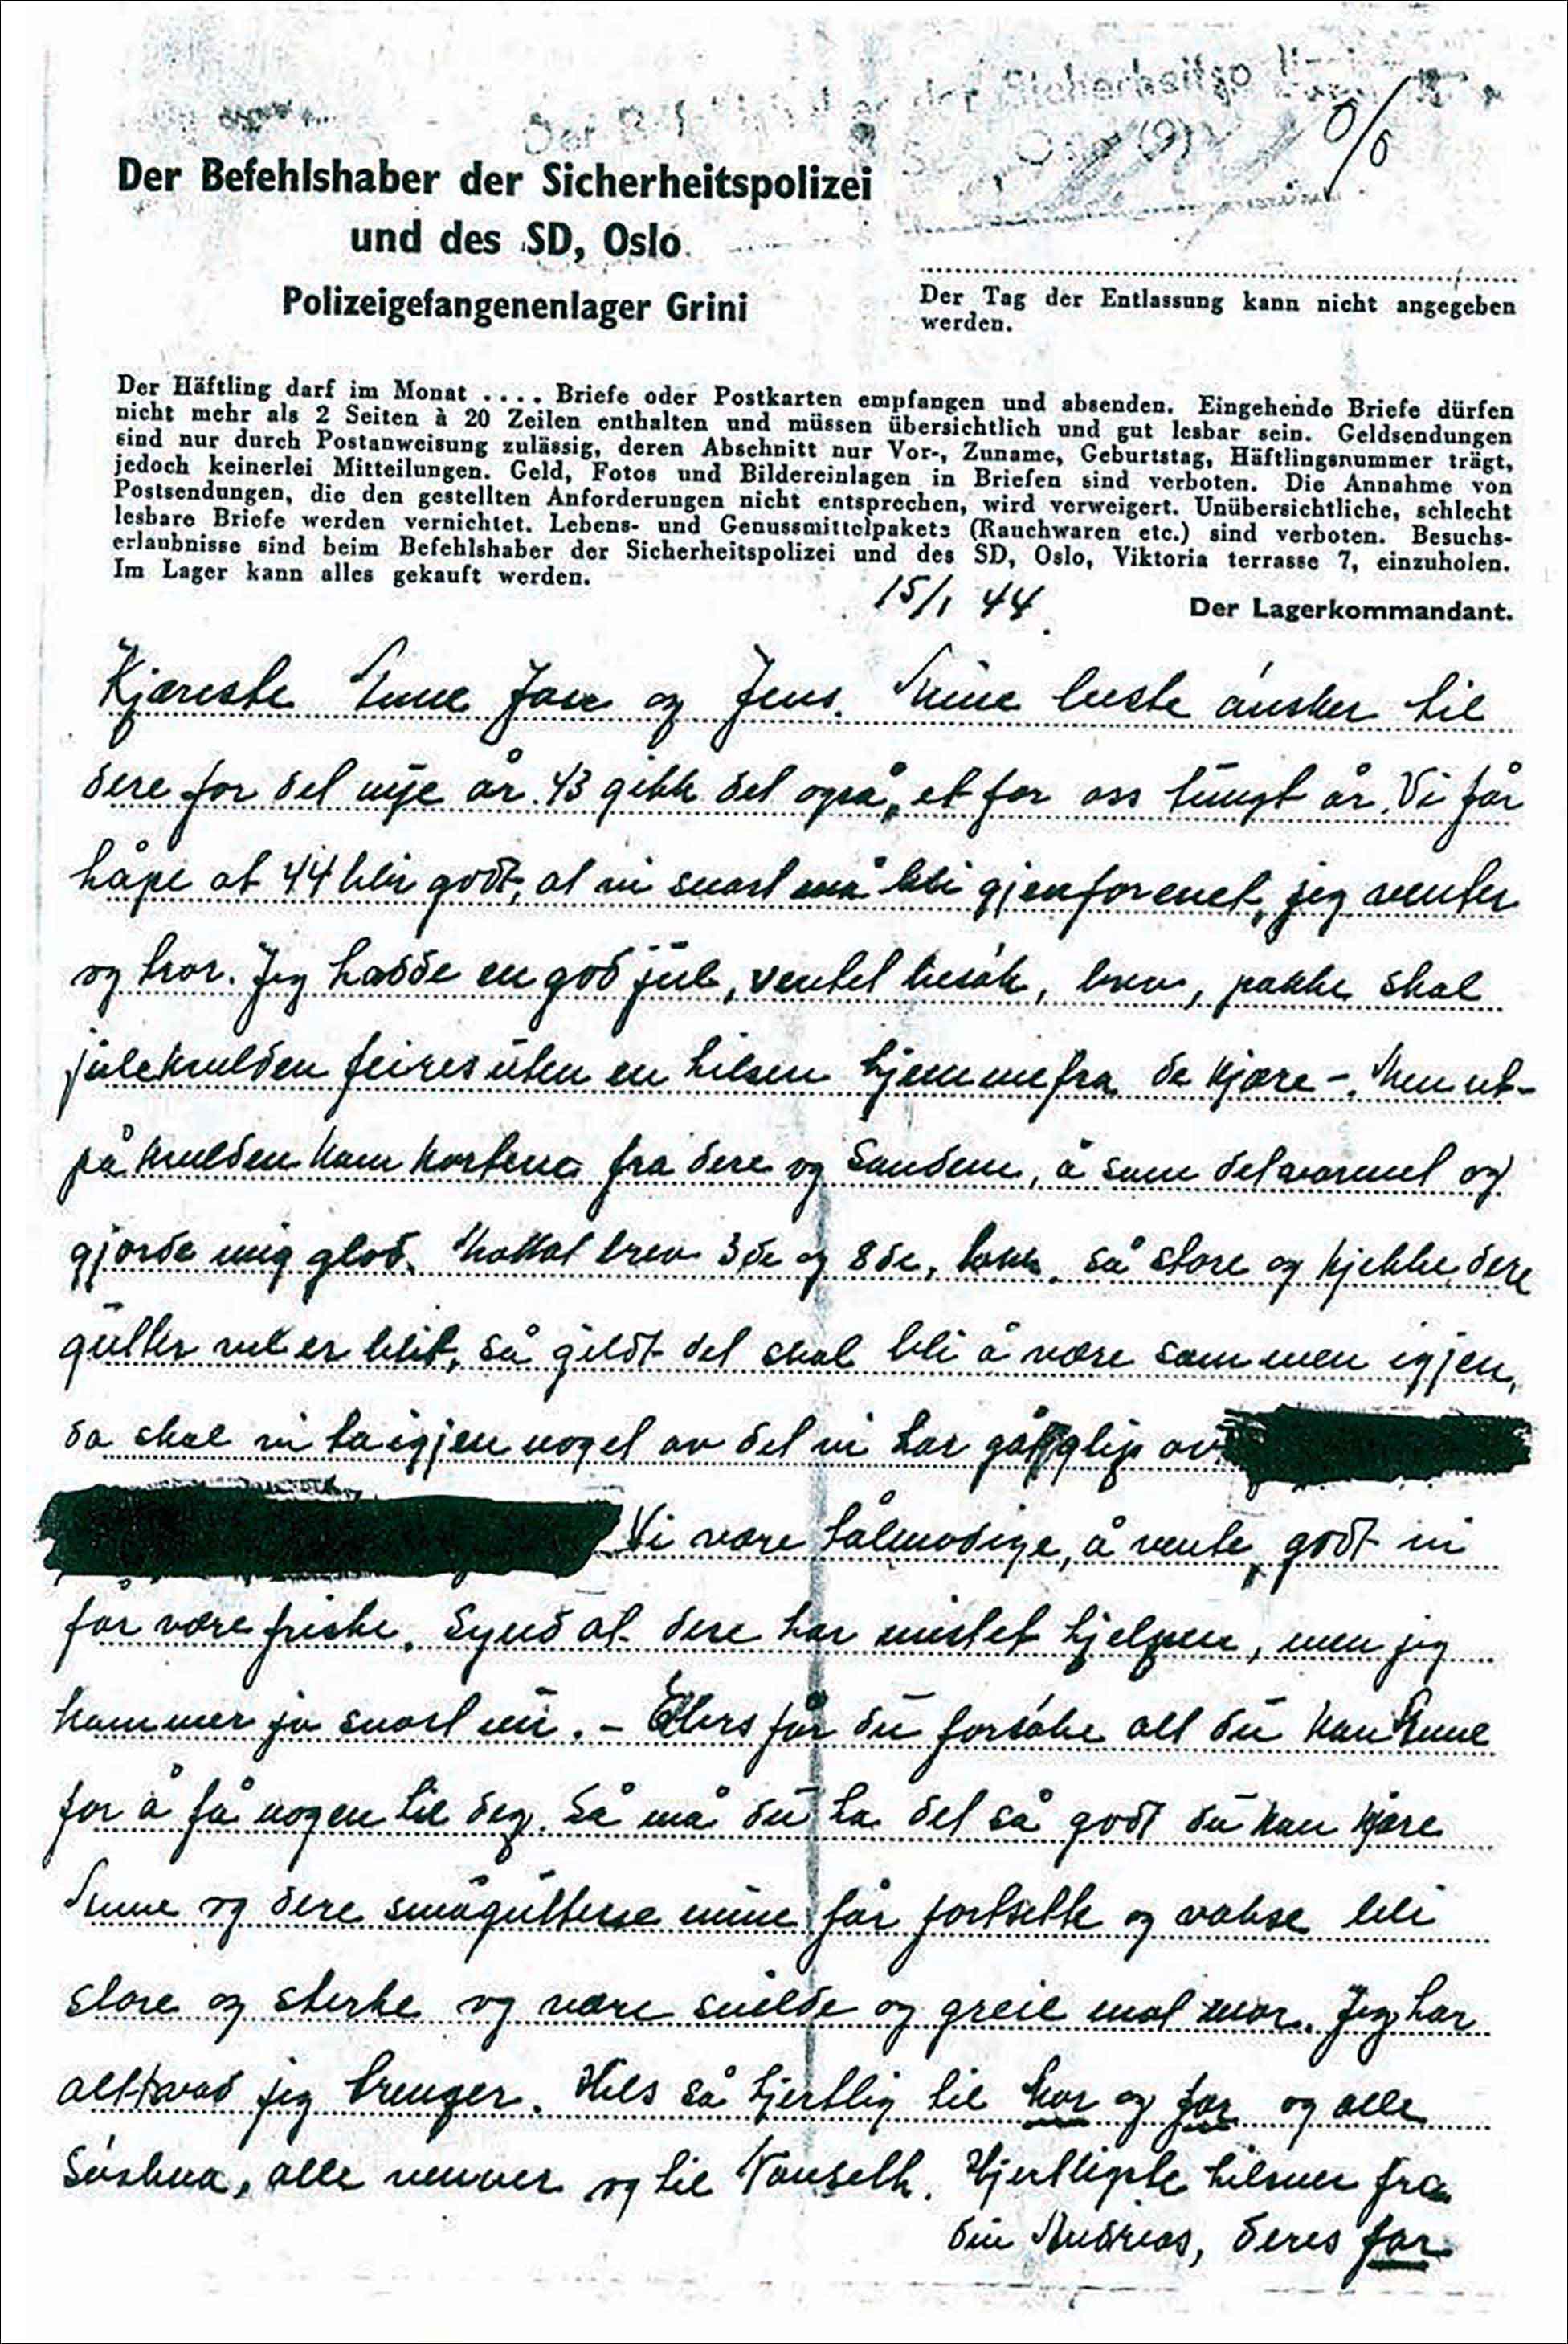 Der Befehlshaber der Sicherheitspolizei
und des SD, Oslo.
Polizeigefangenenlager Grini
Der Tag der Entlassung kann nicht angegeben
werden.
Der Häftling darf im Monat .... Briefe oder Postkarten empfangen und absenden. Eingehende Briefe dürfen
nicht mehr als 2 Seiten à 20 Zeilen enthalten und müssen übersichtlich und gut lesbar sein. Geldsendungen
sind nur durch Postanweisung zulässig, deren Abschnitt nur Vor-, Zuname, Geburtstag, Häftlingsnummer trägt,
jedoch keinerlei Mitteilungen. Geld, Fotos und Bildereinlagen in Briefen sind verboten. Die Annahme von
Postsendungen, die den gestellten Anforderungen nicht entsprechen, wird verweigert. Unübersichtliche, schlecht
lesbare Briefe werden vernichtet. Lebens- und Genussmittelpakets (Rauchwaren etc.) sind verboten. Besuchs-
erlaubnisse sind beim Befehlshaber der Sicherheitspolizei und des SD, Oslo, Viktoria terrasse 7, einzuholen.
Im Lager kann alles gekauft werden.
15/1 44.
Der Lagerkommandant.
Kjæreste og Jens. Mine beste ønsker til
dere for det nye år. 43 gikk det også, et for oss tungt år. Vi får
håpe at 44 blir godt, at vi snart må bli gjenforenet, jeg venter
og tror. Jeg hadde en god jul, ventet besøk, brev, pakke skal
julekvelden feires uten en hilsen hjemmefra de kjære -. Men ut-
på kvelden kom kortene fra dere og Sandem, å som det varmet og
gjorde mig glad. Mottat brev 3de og 8de, takk. Så store og kjekke dere
gutter vel er blit, så gildt det skal bli å være sammen igjen,
da skal vi ta igjen noget av det vi har gåt glip av.
Vi være tålmodige, å vente, godt vi
får være friske. Synd at dere har mistet hjelpen, men jeg
kommer jo snart nu. - Ellers får du forsøke alt du kan
for å få nogen til deg. Så må du ha det så godt du kan kjære
og dere småguttene mine får fortsette og vokse bli
store og sterke og være snilde og greie mot mor. Jeg har
alt hvad jeg trenger. Hils så hjertlig til mor og far og alle
Søskna, alle venner og til Hjertligste hilsner fra
din Andreas, deres far